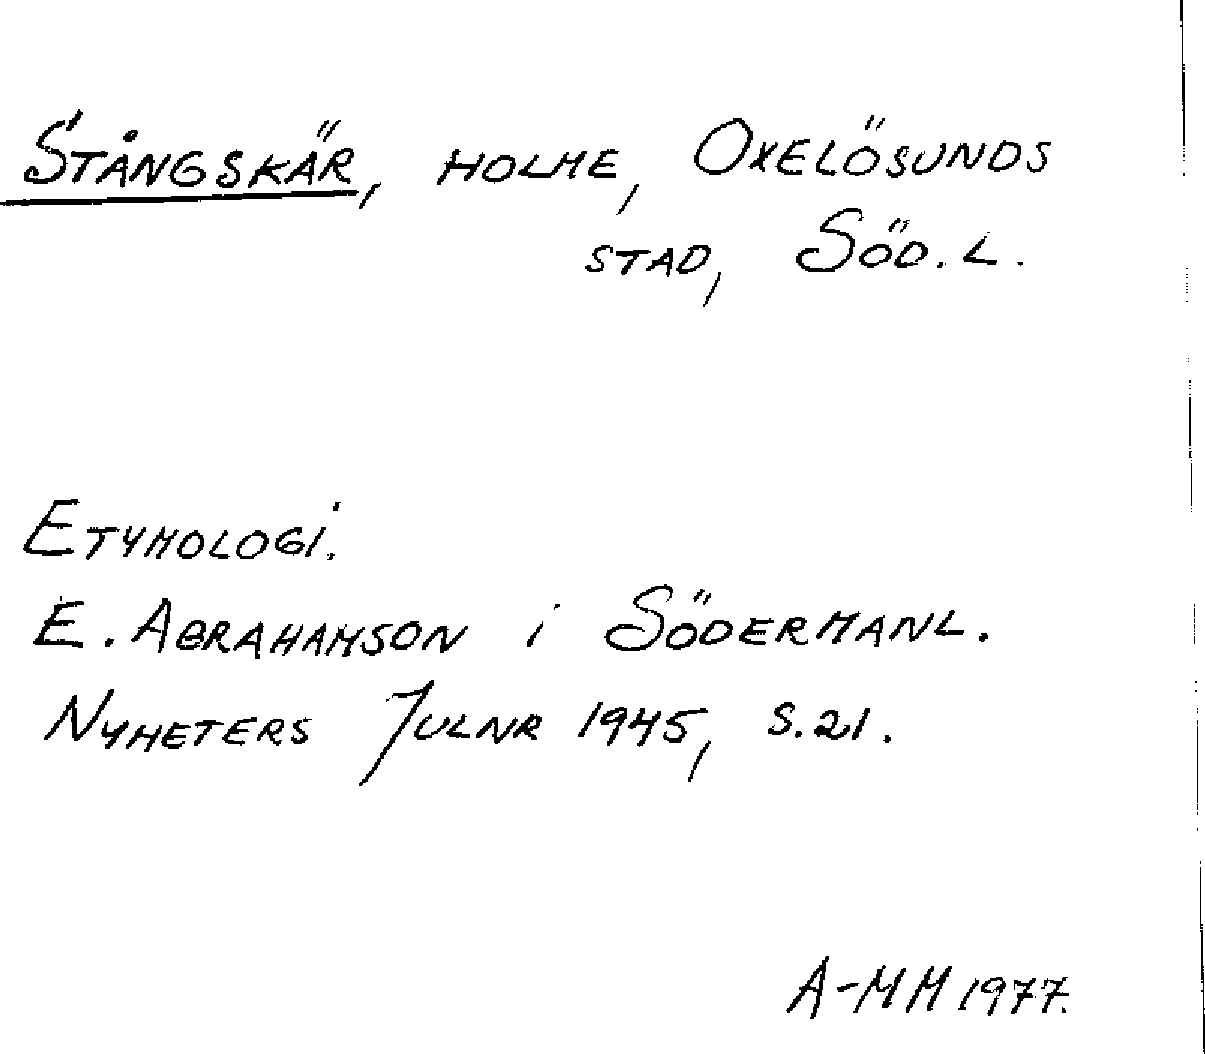 STÅNGSKÄR, HOLME, OXELÖSUNDS
STAD, SÖD. L.
ETYMOLOGI.
E. ABRAHAMSON i SÖDERMANL.
NYHETERS JULNR 1945, S. 21.
A-MH 1977.